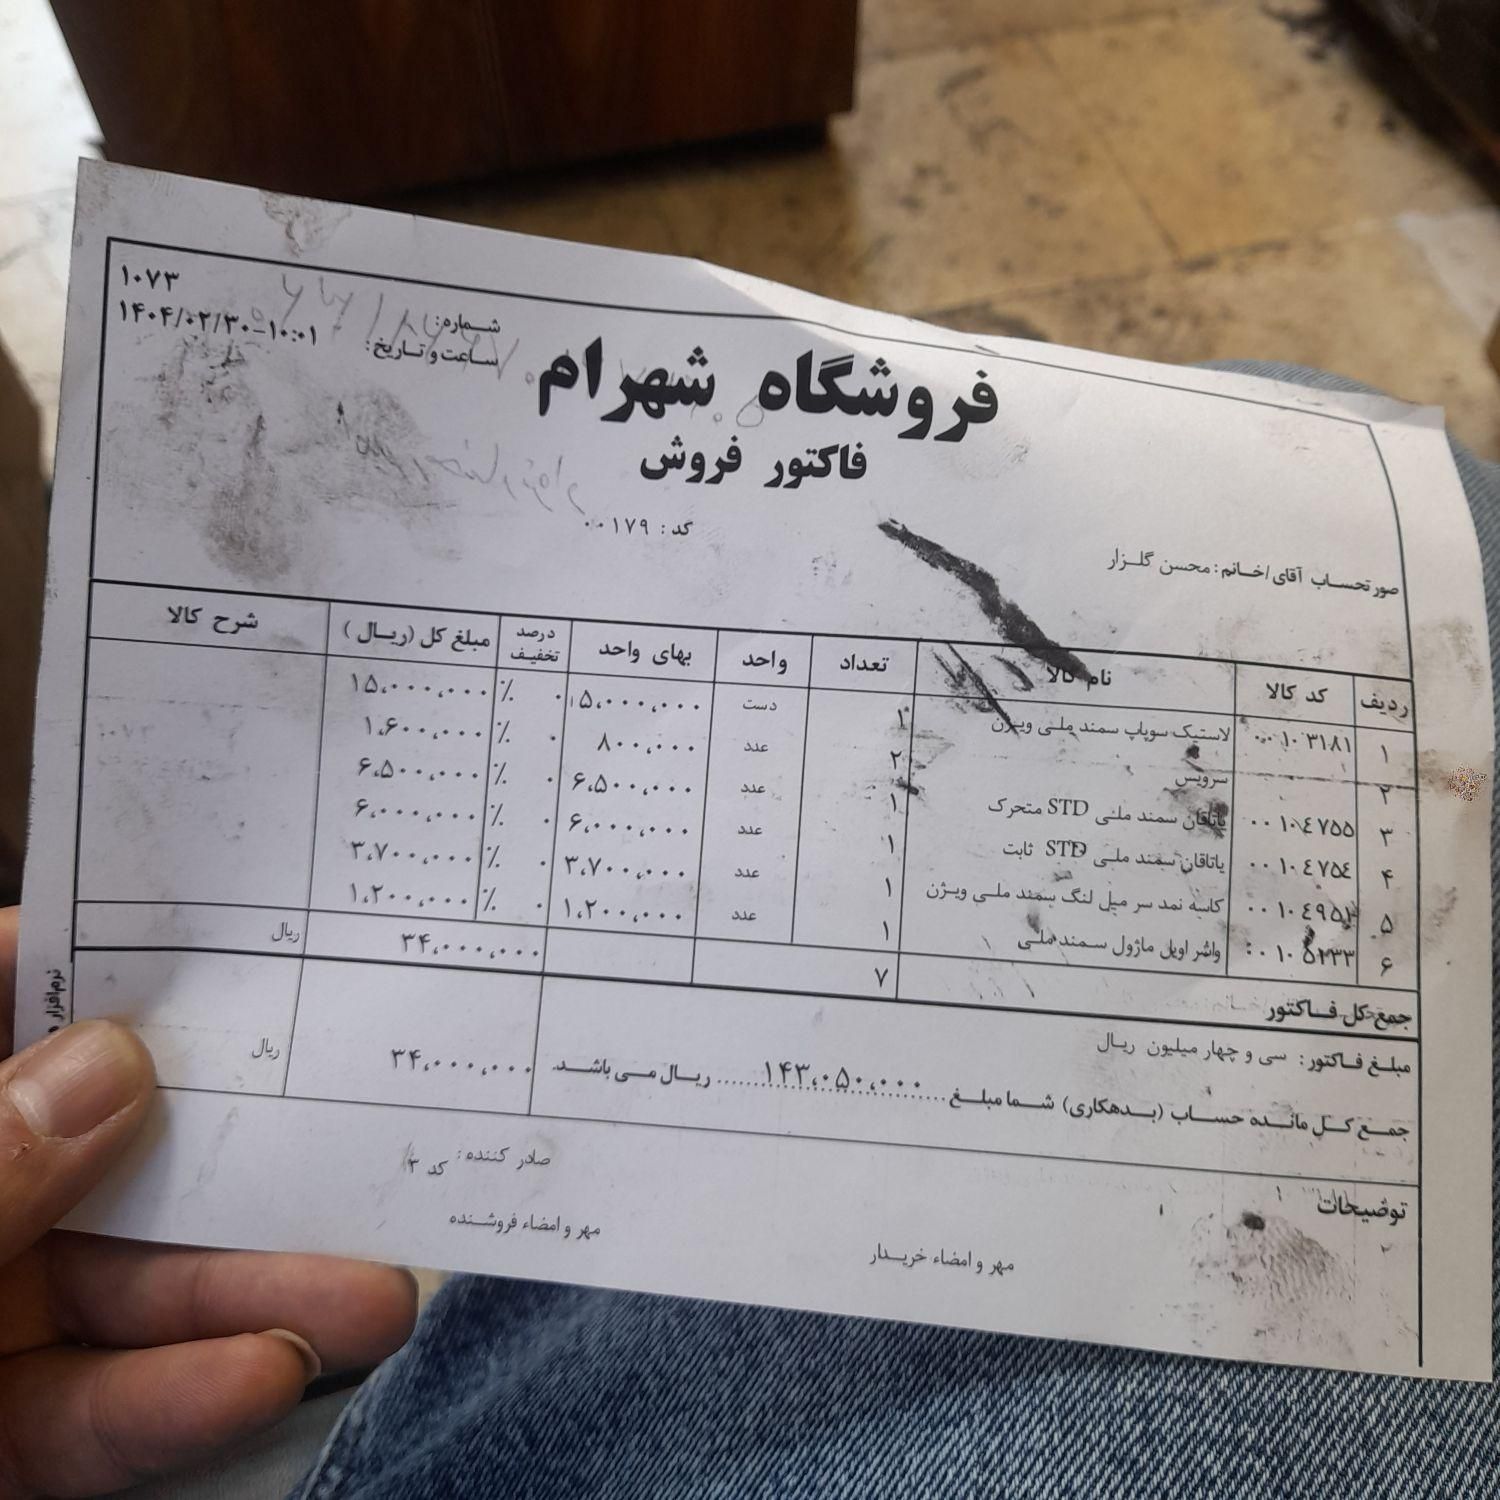 شماره: ۱۰۷۳
ساعت و تاریخ: ۱۴۰۴/۰۲/۳۰-۱۰:۰۱
فروشگاه شهرام
فاکتور فروش
کد : ۰۰۱۷۹
صورتحساب آقای/خانم: محسن گلزار
ردیف کد کالا نام کالا تعداد واحد بهای واحد درصد تخفیف مبلغ کل (ریال) شرح کالا
۱ ۰۰۱۰۳۱۸۱ لاستیک سوپاپ سمند ملی ویژن ۱ دست ۱۵،۰۰۰،۰۰۰ ۰ ٪ ۱۵،۰۰۰،۰۰۰
۲ سرویس ۲ عدد ۸۰۰،۰۰۰ ۰ ٪ ۱،۶۰۰،۰۰۰
۳ ۰۰۱۰٤۷۵۵ یاتاقان سمند ملی STD متحرک ۱ عدد ۶،۵۰۰،۰۰۰ ۰ ٪ ۶،۵۰۰،۰۰۰
۴ ۰۰۱۰٤۷۵٤ یاتاقان سمند ملی STD ثابت ۱ عدد ۶،۰۰۰،۰۰۰ ۰ ٪ ۶،۰۰۰،۰۰۰
۵ کاسه نمد سر میل لنگ سمند ملی ویژن ۱ عدد ۳،۷۰۰،۰۰۰ ۰ ٪ ۳،۷۰۰،۰۰۰
۶ واشر اویل ماژول سمند ملی ۱ عدد ۱،۲۰۰،۰۰۰ ۰ ٪ ۱،۲۰۰،۰۰۰
جمع کل فاکتور ۷ ۳۴،۰۰۰،۰۰۰ ریال
مبلغ فاکتور : سی و چهار میلیون ریال
جمع کل مانده حساب (بدهکاری) شما مبلغ ۱۴۳،۰۵۰،۰۰۰ ریال می باشد. ۳۴،۰۰۰،۰۰۰ ریال
توضیحات
صادر کننده : کد ۳
مهر و امضاء خریدار
مهر و امضاء فروشنده
نرم‌افزار